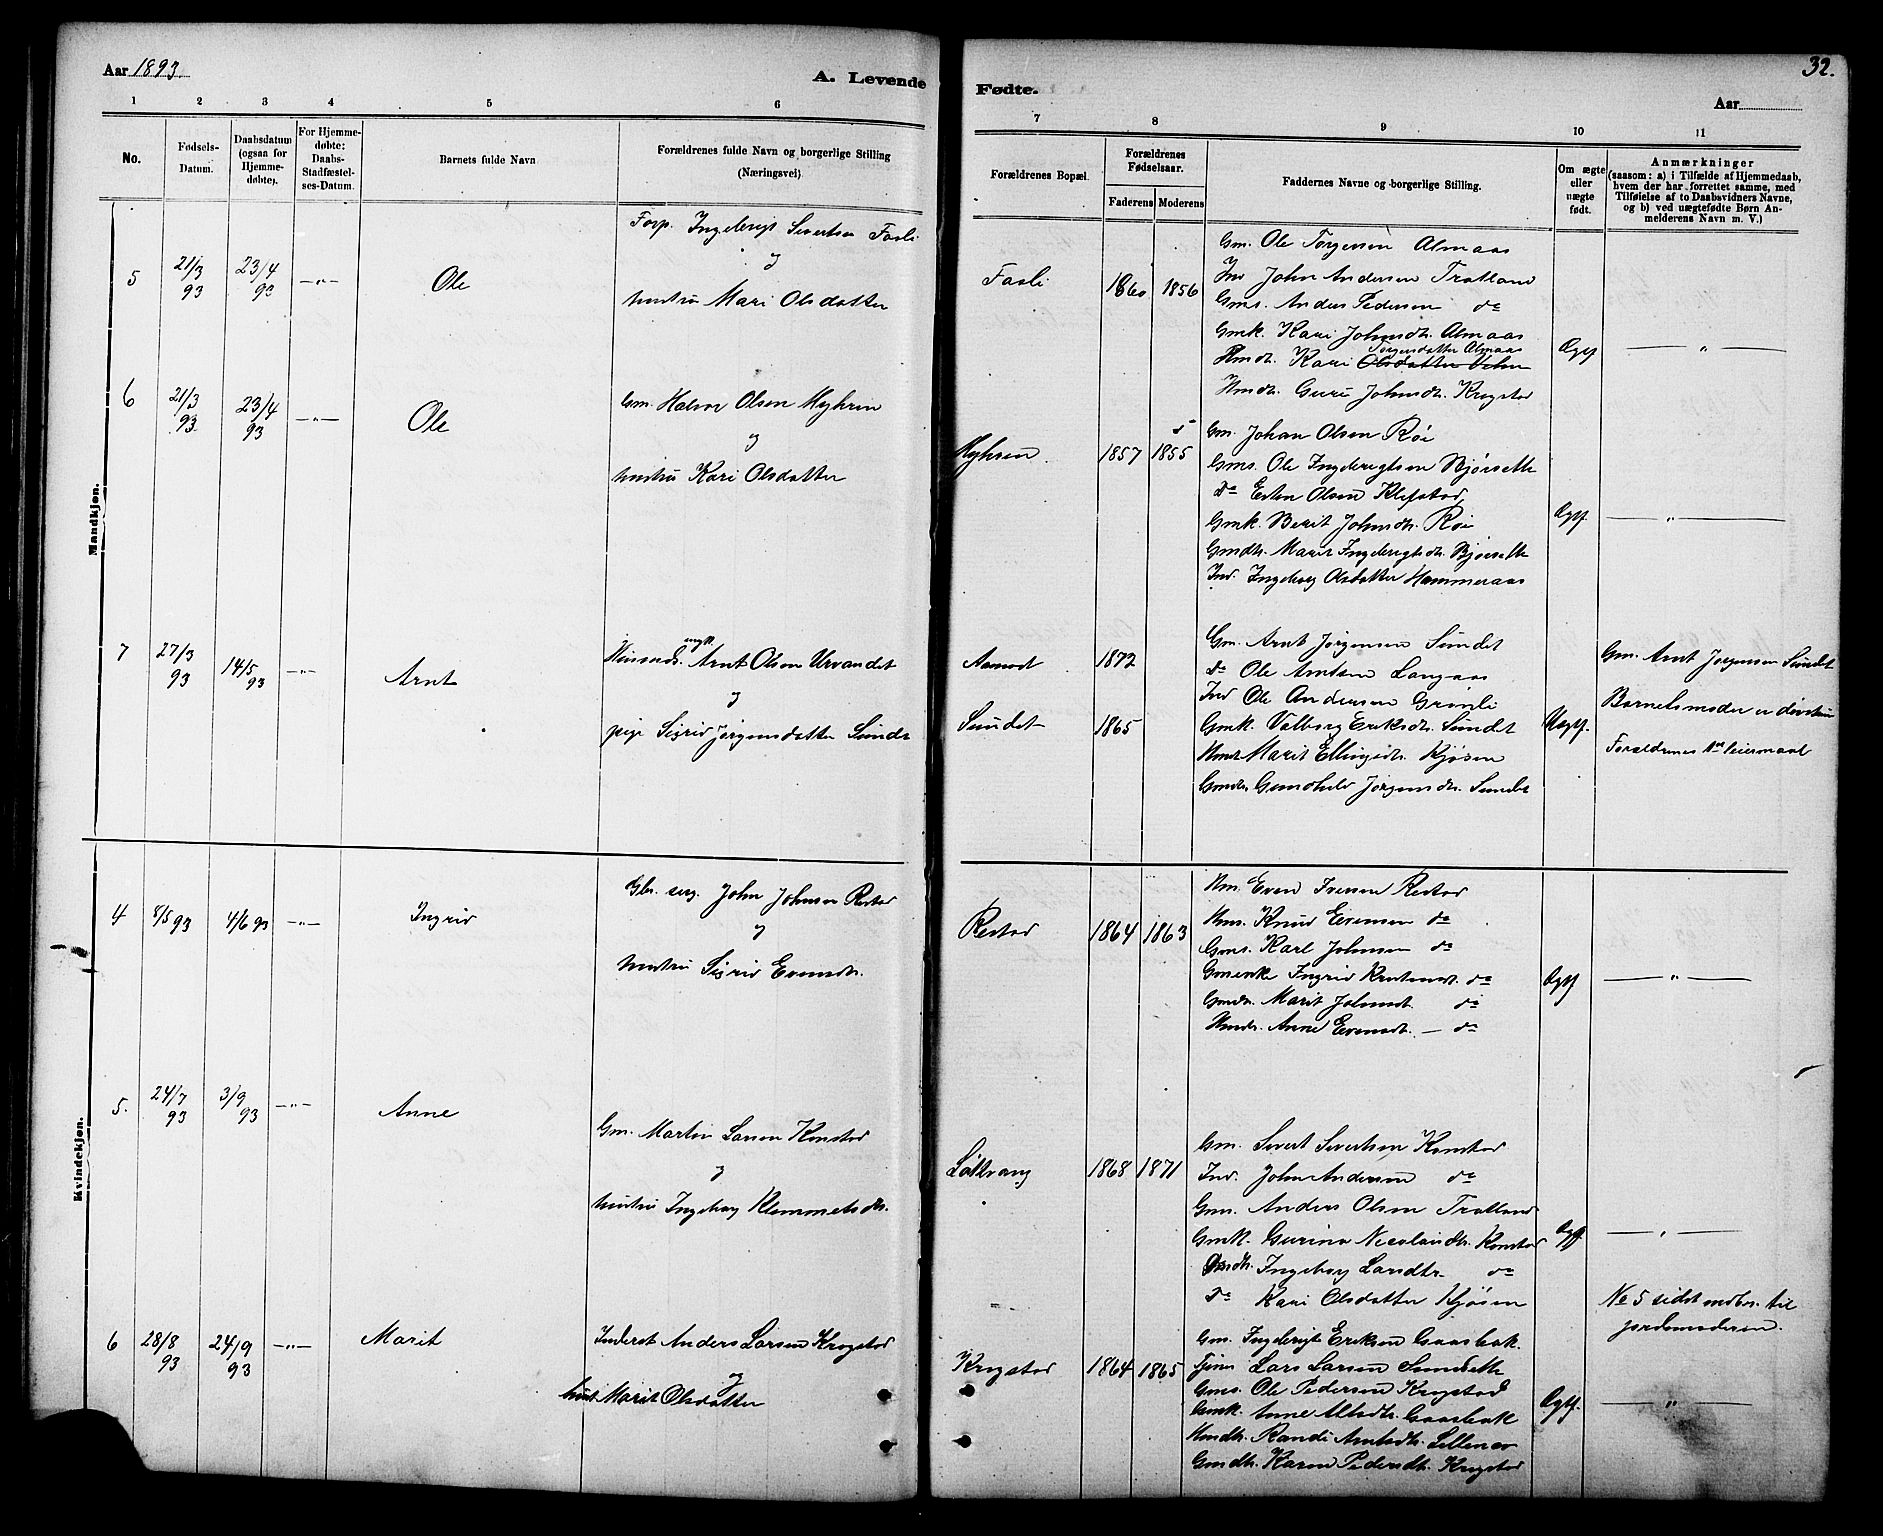 Aar 1893.
A. Levende
Fødte.
32.
Aar
1 2 3 4 5 6
7 8 9 10 11
No.
Fødsels-
Datum.
Daabsdatum
(ogsaa for
Hjemme-
døbte).
For Hjemme-
døbte:
Daabs-
Stadfæstel-
ses-Datum.
Barnets fulde Navn
Forældrenes fulde Navn og borgerlige Stilling
(Næringsvei)
Forældrenes Bopæl.
Forældrenes
Fødselsaar.
Faderens Moderens
Faddernes Navne og borgerlige Stilling.
Om ægte
eller
uægte
født.
Anmærkninger
(saasom: a) i Tilfælde af Hjemmedaab,
hvem der har forrettet samme, med
Tilføielse af to Daabsvidners Navne,
og b) ved uægtefødte Børn An-
melderens Navn m. V.)
Mandkjøn.
5 21/3 93 23/4 93 —„— Ole
Forp. Ingebrigt Sivertsen Fasli
og
hustru Mari Olsdatter
Fasli 1860 1856
Gm. Ole Torgersen Almaas
Ind John Andersen Trotland
Gms. Anders Pedersen do
Gmk. Kari Johnsdtr. Almaas
Torgersdatter Almaas
Hmdtr. Kari Olsdatter
Hmdt. Guri Johnsdtr. Krogstad
Ægte —„—
6 21/3 93 23/4 93 —„— Ole
Gm. Halvor Olsen Myhren
og
hustru Kari Olsdatter
Myhren 1857 1855
Gm. Johan Olsen Røe
Gms. Ole Ingebrigtsen Bjørseth
Do Esten Olsen Klefstad
Gmk. Berit Johnsdtr. Røe
Gmdtr. Marit Ingebrigtsdtr. Bjørseth
Ind. Ingeborg Olsdatter Hammeraas
Ægte —„—
7 27/3 93 14/5 93 —„— Arnt
ungk.
Husmds. Arnt Olsen Urvandet
og
pige Sigrid Jørgensdatter Sundet
Aamot 1872
Sundet 1865
Gm. Arnt Jørgensen Sundet
Do Ole Arntsen Langaas
Ind Ole Andersen Grønli
Gmk. Valborg Eriksdtr. Sundet
Hmdt Marit Ellingsdtr. Kjøsen
Gmdtr Gundhild Jørgensdtr. Sundet
Uægte
Gm. Arnt Jørgensen Sundet
Barnets moder er
Forældrenes 1ste leiermaal
Kvindekjøn.
4 8/5 93 4/6 93 —„— Ingrid
Gbr. John Johnsen Restad
og
hustru Sigrid Evensdtr.
Restad 1864 1863
Hm. Even Iversen Restad
Hms. Knud Evensen do
Gms. Karl Johnsen do
Gmenke Ingrid Knutsendt. do
Gmdtr. Marit Johnsdt. do
Hmdtr. Anne Evensdt. — do
Ægte —„—
5. 24/7 93 3/9 93 —„— Anne
Gm. Martin Larsen Konstad
og
hustru Ingeborg Klemmetsdtr.
Løltvang 1868 1871
Gm. Sivert Sivertsen Konstad
Ind. John Andersen do
Gms. Anders Olsen Trotland
Gmk. Gurina Nicolaidtr. Konstad
Gmdtr. Ingeborg Larsdtr. do
Do Kari Olsdatter Kjøsen
Ægte —„—
No 5 sidst indber. til
jordemoderen.
6 28/8 93 24/9 93 —„— Marit
Inderst Anders Larsen Krogstad
og
hust. Marit Olsdatter
Krogstad 1864 1865
Gm. Ingebrigt Eriksen Gaasbak.
Lars Larsen Sundseth
Gms. Ole Pedersen Krogstad
Gmk. Anne Gaasbak
Hmdtr. Randi Arntsdtr.
Gmdtr. Karen Pedersdtr. Krogstad
Ægte. —„—